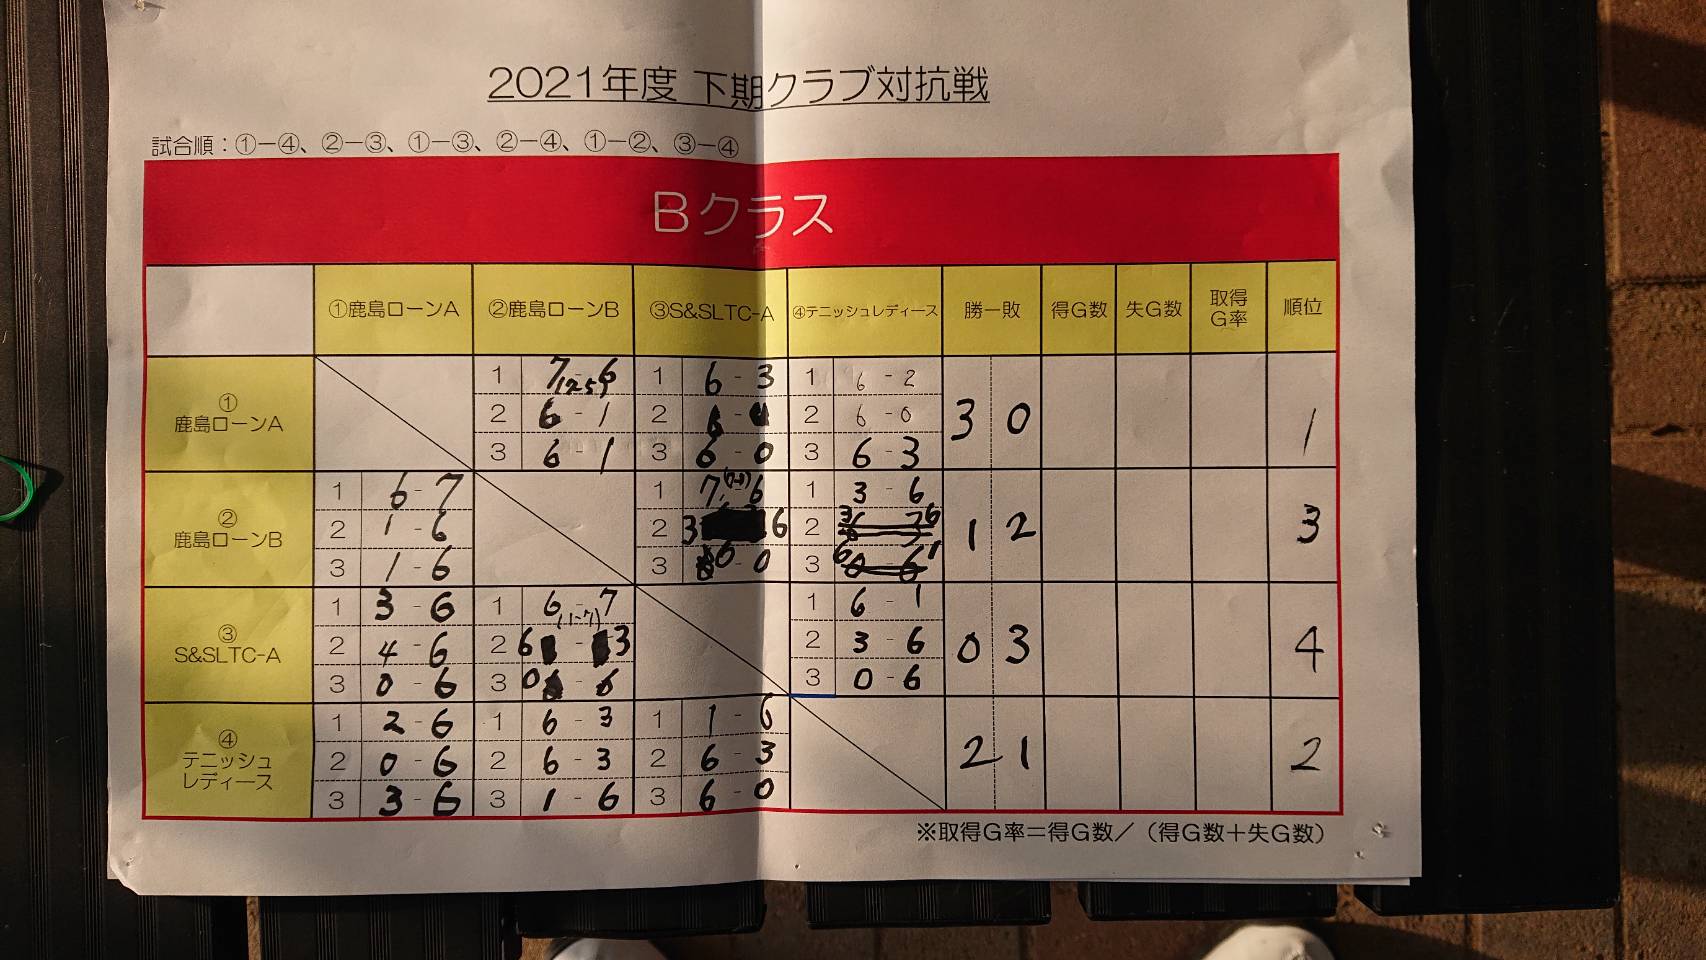 2021年度 下期クラブ対抗戦
試合順：①ー④、②ー③、①ー③、②ー④、①ー②、③ー④
Bクラス
①鹿島ローンA ②鹿島ローンB ③S&SLTC-A ④テニッシュレディース 勝ー敗 得G数 失G数 取得G率 順位
①
鹿島ローンA
1 7-6 1 6-3 1 6-2
2 6-1 2 2 6-0
3 6-1 3 6-0 3 6-3
3 0 1
②
鹿島ローンB
1 6-7 1 7-6 1 3-6
2 1-6 2 3 6 2 3 6
3 1-6 3 6-0 3 6 1
1 2 3
③
S&SLTC-A
1 3-6 1 6-7 1 6-1
2 4-6 2 6-3 2 3-6
3 0-6 3 0-6 3 0-6
0 3 4
④
テニッシュ
レディース
1 2-6 1 6-3 1 1-6
2 0-6 2 6-3 2 6-3
3 3-6 3 1-6 3 6-0
2 1 2
※取得G率＝得G数／（得G数＋失G数）